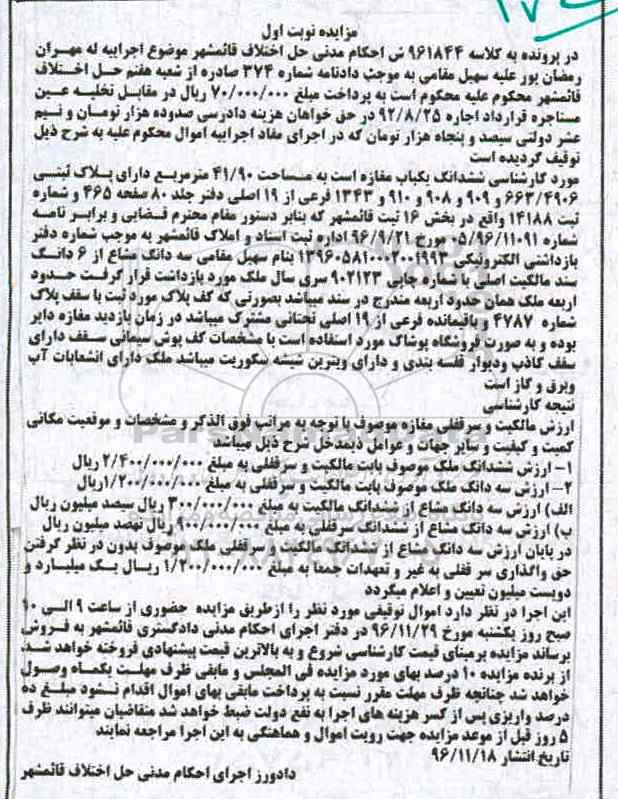 مزایده نوبت اول
در پرونده به کلاسه ۹۶۱۸۴۴ ش احکام مدنی حل اختلاف قائمشهر موضوع اجراییه له مهران
رمضان پور علیه سهیل مقامی به موجب دادنامه شماره ۳۷۴ صادره از شعبه هفتم حل اختلاف
قائمشهر محکوم علیه محکوم است به پرداخت مبلغ ۷۰/۰۰۰/۰۰۰ ریال در مقابل تخلیه عین
مستاجره قرارداد اجاره ۹۲/۸/۲۵ در حق خواهان هزینه دادرسی صدوده هزار تومان و نیم
عشر دولتی سیصد و پنجاه هزار تومان که در اجرای مفاد اجراییه اموال محکوم علیه به شرح ذیل
توقیف گردیده است
مورد کارشناسی ششدانگ یکباب مغازه است به مساحت ۴۱/۹۰ مترمربع دارای پلاک ثبتی
۶۶۳/۴۹۰۶ و ۹۰۹ و ۹۰۸ و ۹۱۰ و ۱۳۴۳ فرعی از ۱۹ اصلی دفتر جلد ۸۰ صفحه ۴۶۵ و شماره
ثبت ۱۴۱۸۸ واقع در بخش ۱۶ ثبت قائمشهر که بنابر دستور مقام محترم قضایی و برابر نامه
شماره ۰۵/۹۶/۱۱۰۹۱ مورخ ۹۶/۹/۲۱ اداره ثبت اسناد و املاک قائمشهر به موجب شماره دفتر
بازداشتی الکترونیکی ۱۳۹۶۰۵۸۱۰۰۰۲۰۰۱۹۹۳ بنام سهیل مقامی سه دانگ مشاع از ۶ دانگ
سند مالکیت اصلی با شماره چاپی ۹۰۲۱۲۳ سری سال ملک مورد بازداشت قرار گرفت حدود
اربعه ملک همان حدود اربعه مندرج در سند میباشد بصورتی که کف پلاک مورد ثبت با سقف پلاک
شماره ۴۷۸۷ و باقیمانده فرعی از ۱۹ اصلی تحتانی مشترک میباشد در زمان بازدید مغازه دایر
بوده و به صورت فروشگاه پوشاک مورد استفاده است با مشخصات کف پوش سیمانی سقف دارای
سقف کاذب ودیوار قفسه بندی و دارای ویترین شیشه سکوریت میباشد ملک دارای انشعابات آب
وبرق و گاز است
نتیجه کارشناسی
ارزش مالکیت و سرقفلی مغازه موصوف با توجه به مراتب فوق الذکر و مشخصات و موقعیت مکانی
کمیت و کیفیت و سایر جهات و عوامل ذیمدخل شرح ذیل میباشد
۱- ارزش ششدانگ ملک موصوف بابت مالکیت و سرقفلی به مبلغ ۲/۴۰۰/۰۰۰/۰۰۰ ریال
۲- ارزش سه دانگ ملک موصوف بابت مالکیت و سرقفلی به مبلغ ۱/۲۰۰/۰۰۰/۰۰۰ریال
الف) ارزش سه دانگ مشاع از ششدانگ مالکیت به مبلغ ۳۰۰/۰۰۰/۰۰۰ ریال سیصد میلیون ریال
ب) ارزش سه دانگ مشاع از ششدانگ سرقفلی به مبلغ ۹۰۰/۰۰۰/۰۰۰ ریال نهصد میلیون ریال
در پایان ارزش سه دانگ مشاع از ششدانگ مالکیت و سرقفلی ملک موصوف بدون در نظر گرفتن
حق واگذاری سر قفلی به غیر و تعهدات جمعا به مبلغ ۱/۲۰۰/۰۰۰/۰۰۰ ریال یک میلیارد و
دویست میلیون تعیین و اعلام میگردد
این اجرا در نظر دارد اموال توقیفی مورد نظر را ازطریق مزایده حضوری از ساعت ۹ الی ۱۰
صبح روز یکشنبه مورخ ۹۶/۱۱/۲۹ در دفتر اجرای احکام مدنی دادگستری قائمشهر به فروش
برساند مزایده برمبنای قیمت کارشناسی شروع و به بالاترین قیمت پیشنهادی فروخته خواهد شد.
از برنده مزایده ۱۰ درصد بهای مورد مزایده فی المجلس و مابقی ظرف مهلت یکماه وصول
خواهد شد چنانچه ظرف مهلت مقرر نسبت به پرداخت مابقی بهای اموال اقدام نشود مبلغ ده
درصد واریزی پس از کسر هزینه های اجرا به نفع دولت ضبط خواهد شد متقاضیان میتوانند ظرف
۵ روز قبل از موعد مزایده جهت رویت اموال و هماهنگی به این اجرا مراجعه نمایند
تاریخ انتشار ۹۶/۱۱/۱۸
دادورز اجرای احکام مدنی حل اختلاف قائمشهر